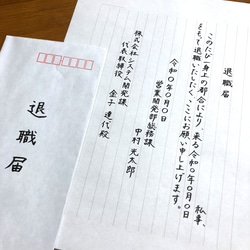 退職届
私事、
このたび一身上の都合により、来る令和〇年〇月〇日
をもって退職いたしたく、ここにお願い申し上げます。
令和〇年〇月〇日
営業開発部総務課
中村光太郎
株式会社システム開発課
代表取締役 金子達代殿
退職届